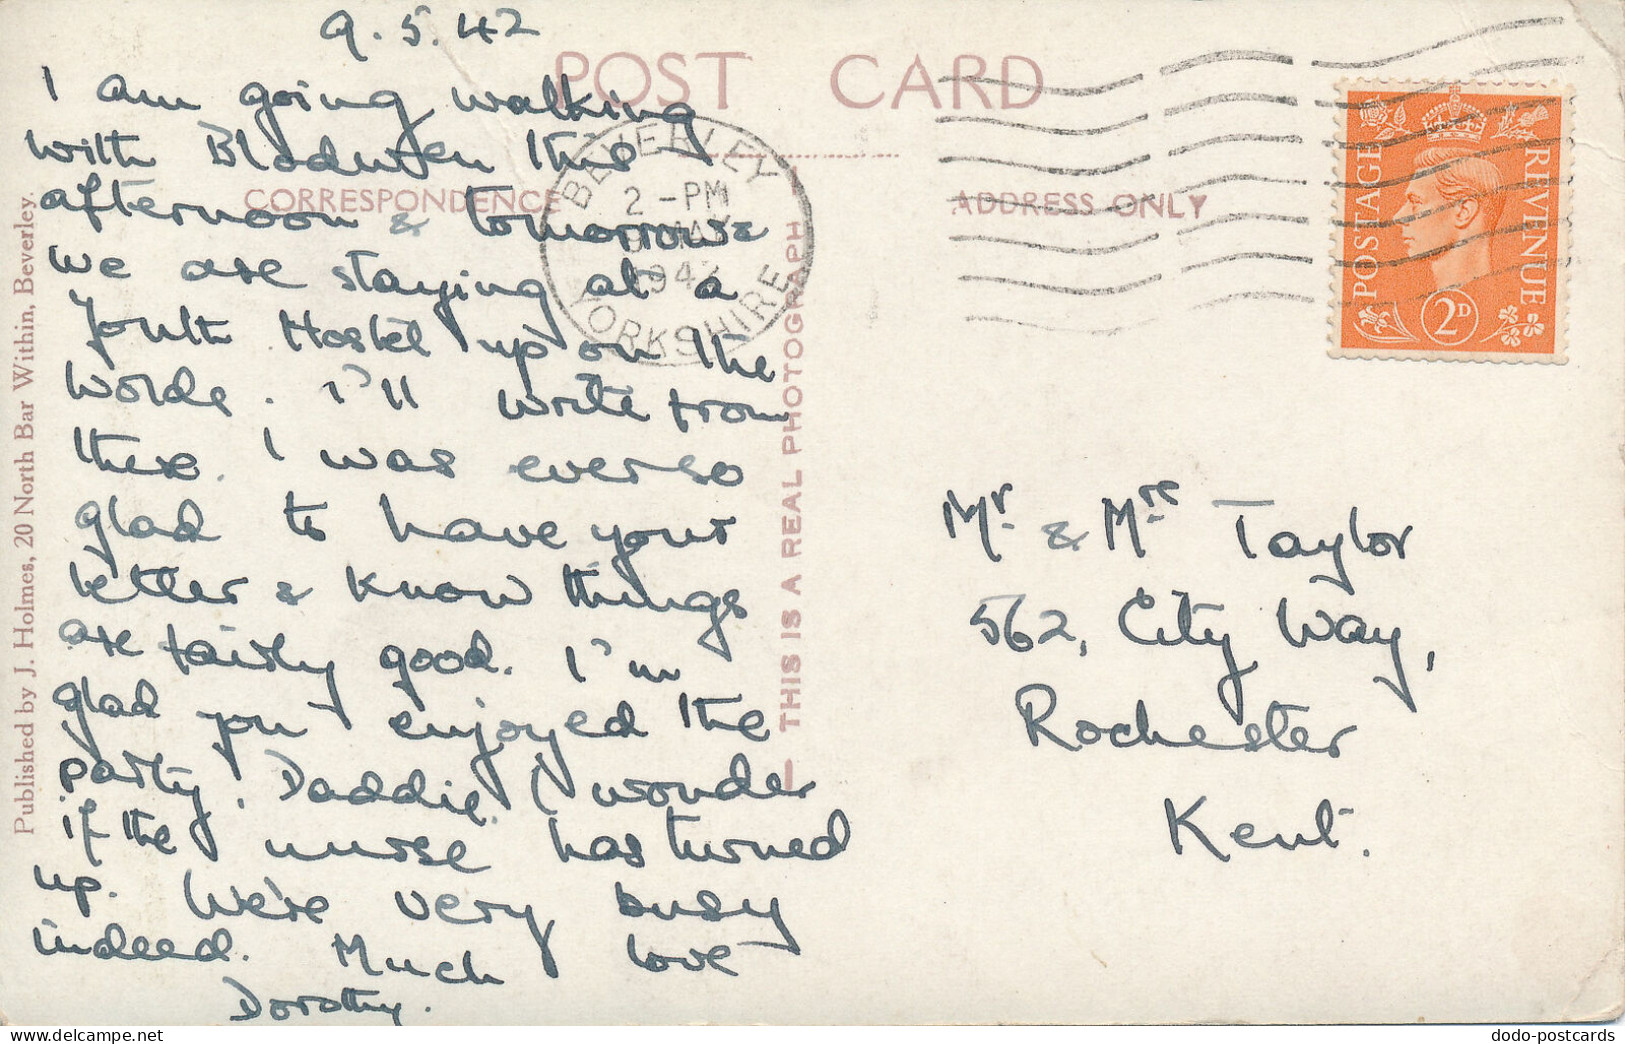 9.5.42
POST CARD
I am going walking
with Bladwen this
afternoon & tomorrow &
we are staying at a
Youth Hostel up on the
Wolds. I'll write from
there. I was ever so
glad to have your
letter & know things
are fairly good. I'm
glad you enjoyed the
party, Daddie. I wonder
if the nurse has turned
up. We're very busy
indeed. Much love
Dorothy.
CORRESPONDENCE
ADDRESS ONLY
BEVERLEY
2 - PM
9 MAY
1942
YORKSHIRE
POSTAGE
REVENUE
2D
Mr. & Mrs Taylor
562, City Way,
Rochester
Kent.
— THIS IS A REAL PHOTOGRAPH
Published by J. Holmes, 20 North Bar Within, Beverley.
dodo-postcards